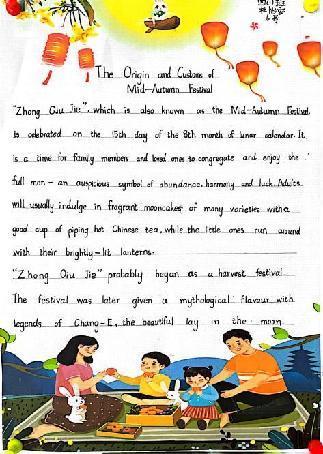 The Origin and Customs of
Mid-Autumn Festival
"Zhong Qiu Jie", which is also known as the Mid-Autumn Festival
is celebrated on the 15th day of the 8th month of lunar calendar. It
is a time for family members and loved ones to congregate and enjoy the
full moon - an auspicious symbol of abundance, harmony and luck Adults
will usually indulge in fragrant mooncakes of many varieties with a
good cup of piping hot Chinese tea, while the little ones run around
with their brightly-lit lanterns.
"Zhong Qiu Jie" probably began as a harvest festival
The festival was later given a mythological flavour with
legends of Chang-E, the beautiful lay in the moon